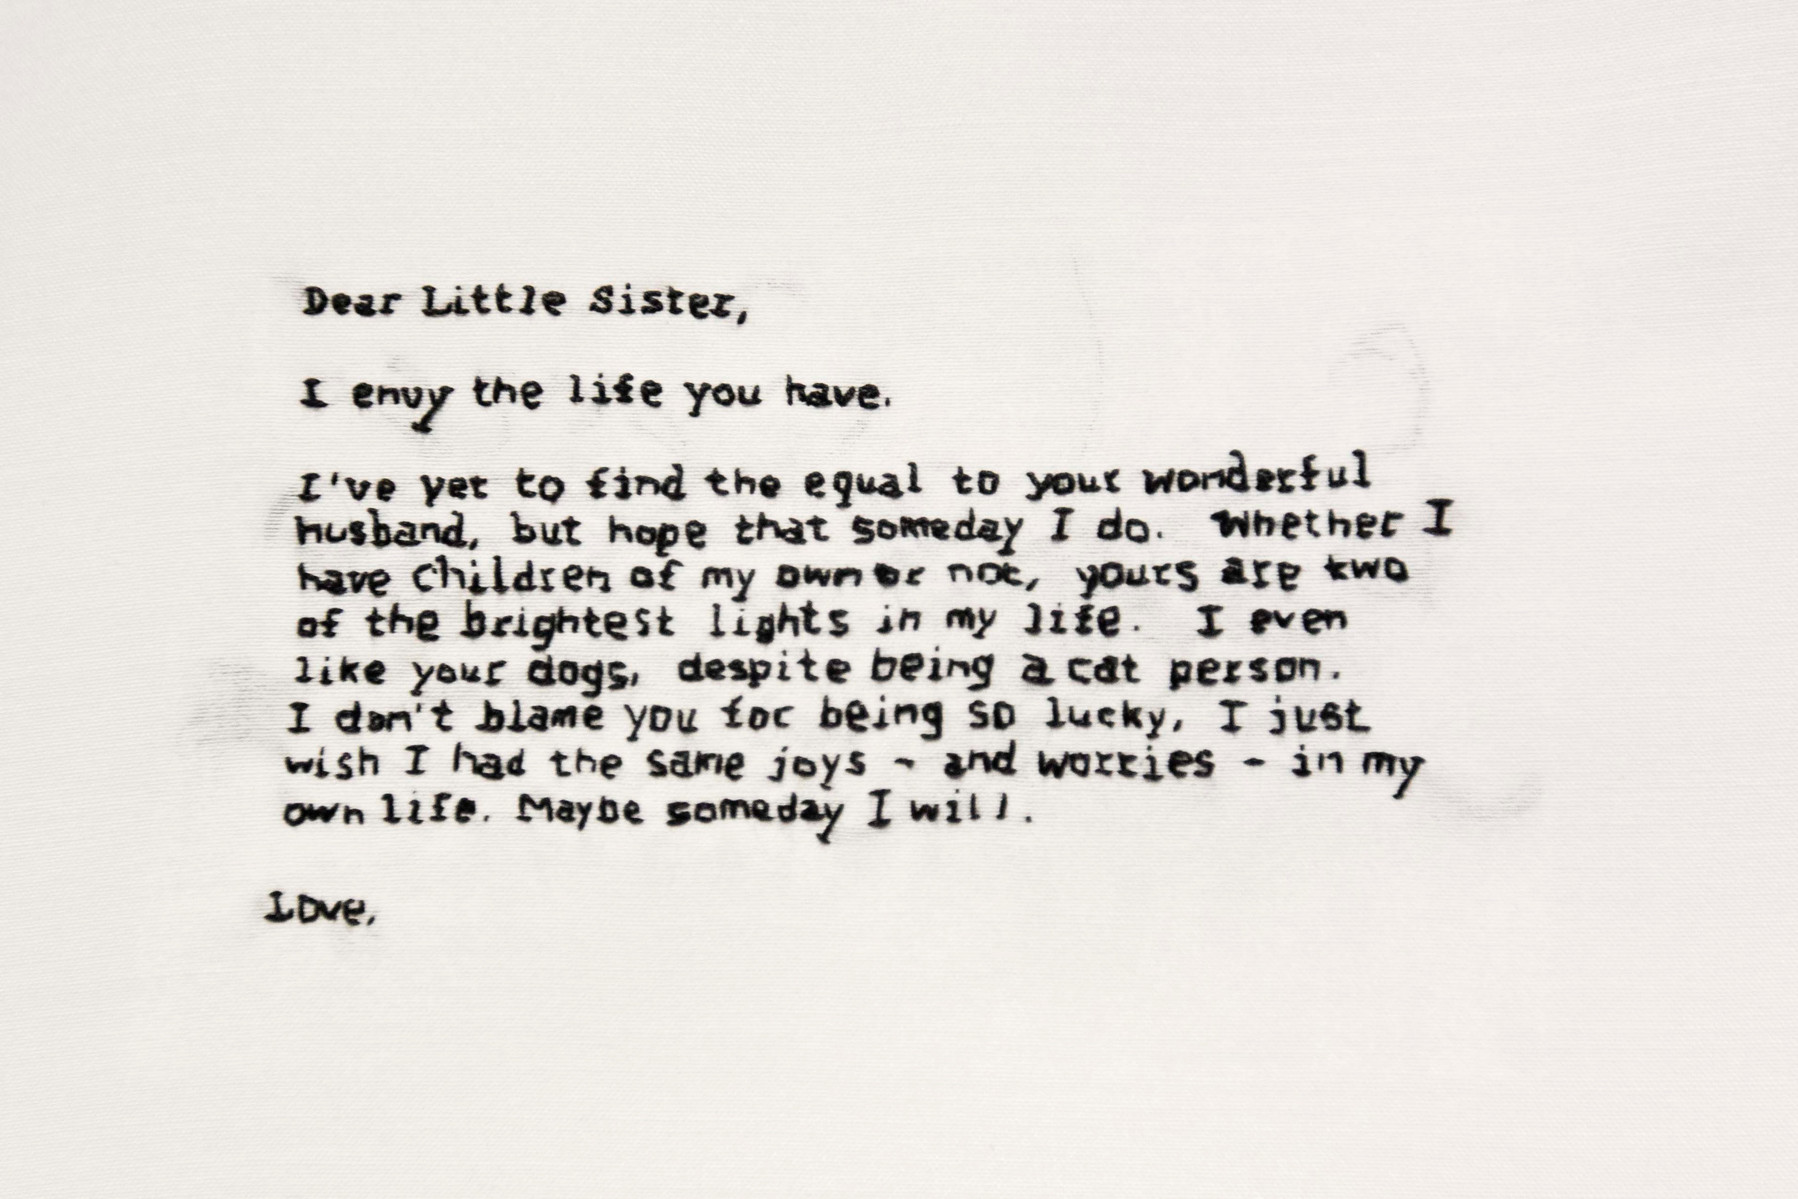 Dear Little Sister,
I envy the life you have.
I've yet to find the equal to your wonderful
husband, but hope that someday I do. Whether I
have children of my own or not, yours are two
of the brightest lights in my life. I even
like your dogs, despite being a cat person.
I don't blame you for being so lucky, I just
wish I had the same joys - and worries - in my
own life. Maybe someday I will.
Love,